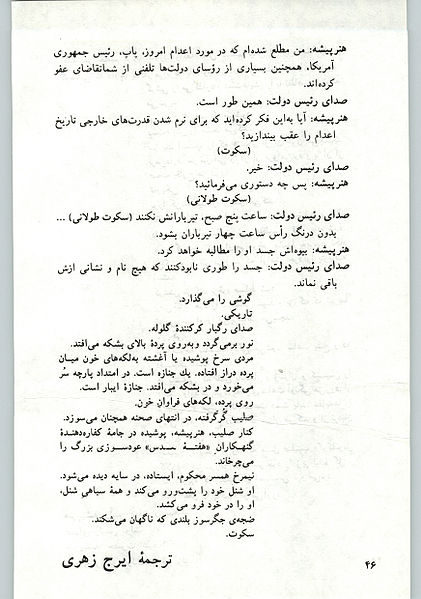 هنرپیشه: من مطلع شده‌ام که در مورد اعدام امروز، پاپ، رئیس جمهوری
آمریکا، همچنین بسیاری از رؤسای دولت‌ها تلفنی از شما تقاضای عفو
کرده‌اند.
صدای رئیس دولت: همین طور است.
هنرپیشه: آیا به‌این فکر کرده‌اید که برای نرم شدن قدرت‌های خارجی تاریخ
اعدام را عقب بیندازید؟
(سکوت)
صدای رئیس دولت: خیر.
هنرپیشه: پس چه دستوری می‌فرمائید؟
(سکوت طولانی)
صدای رئیس دولت: ساعت پنج صبح، تیربارانش نکنند (سکوت طولانی) ...
بدون درنگ رأس ساعت چهار تیرباران بشود.
هنرپیشه: بیوه‌اش جسد او را مطالبه خواهد کرد.
صدای رئیس دولت: جسد را طوری نابودکنند که هیچ نام و نشانی ازش
باقی نماند.
گوشی را می‌گذارد.
تاریکی.
صدای رگبار کرکنندهٔ گلوله.
نور برمی‌گردد و به‌روی پردهٔ بالای بشکه می‌افتد.
مردی سرخ پوشیده یا آغشته به‌لکه‌های خون میـان
پرده دراز افتاده. یك جنازه است. در امتداد پارچه سُر
می‌خورد و در بشکه می‌افتد. جنازهٔ ایبار است.
روی پرده، لکه‌های فراوان خون.
صلیب گُرگرفته، در انتهای صحنه همچنان می‌سوزد.
کنار صلیب، هنرپیشه، پوشیده در جامهٔ کفاره‌دهندهٔ
گنهـکاران «هفتـــهٔ مقـــدس» عودسـوزی بزرگ را
می‌چرخاند.
نیمرخ همسر محکوم، ایستاده، در سایه دیده می‌شود.
او شنل خود را پشت‌ورو می‌کند و همهٔ سیاهی شنل،
او را در خود فرو می‌کشد.
ضجه‌ی جگرسوز بلندی که ناگهان می‌شکند.
سکوت.
ترجمهٔ ایرج زهری
۴۶